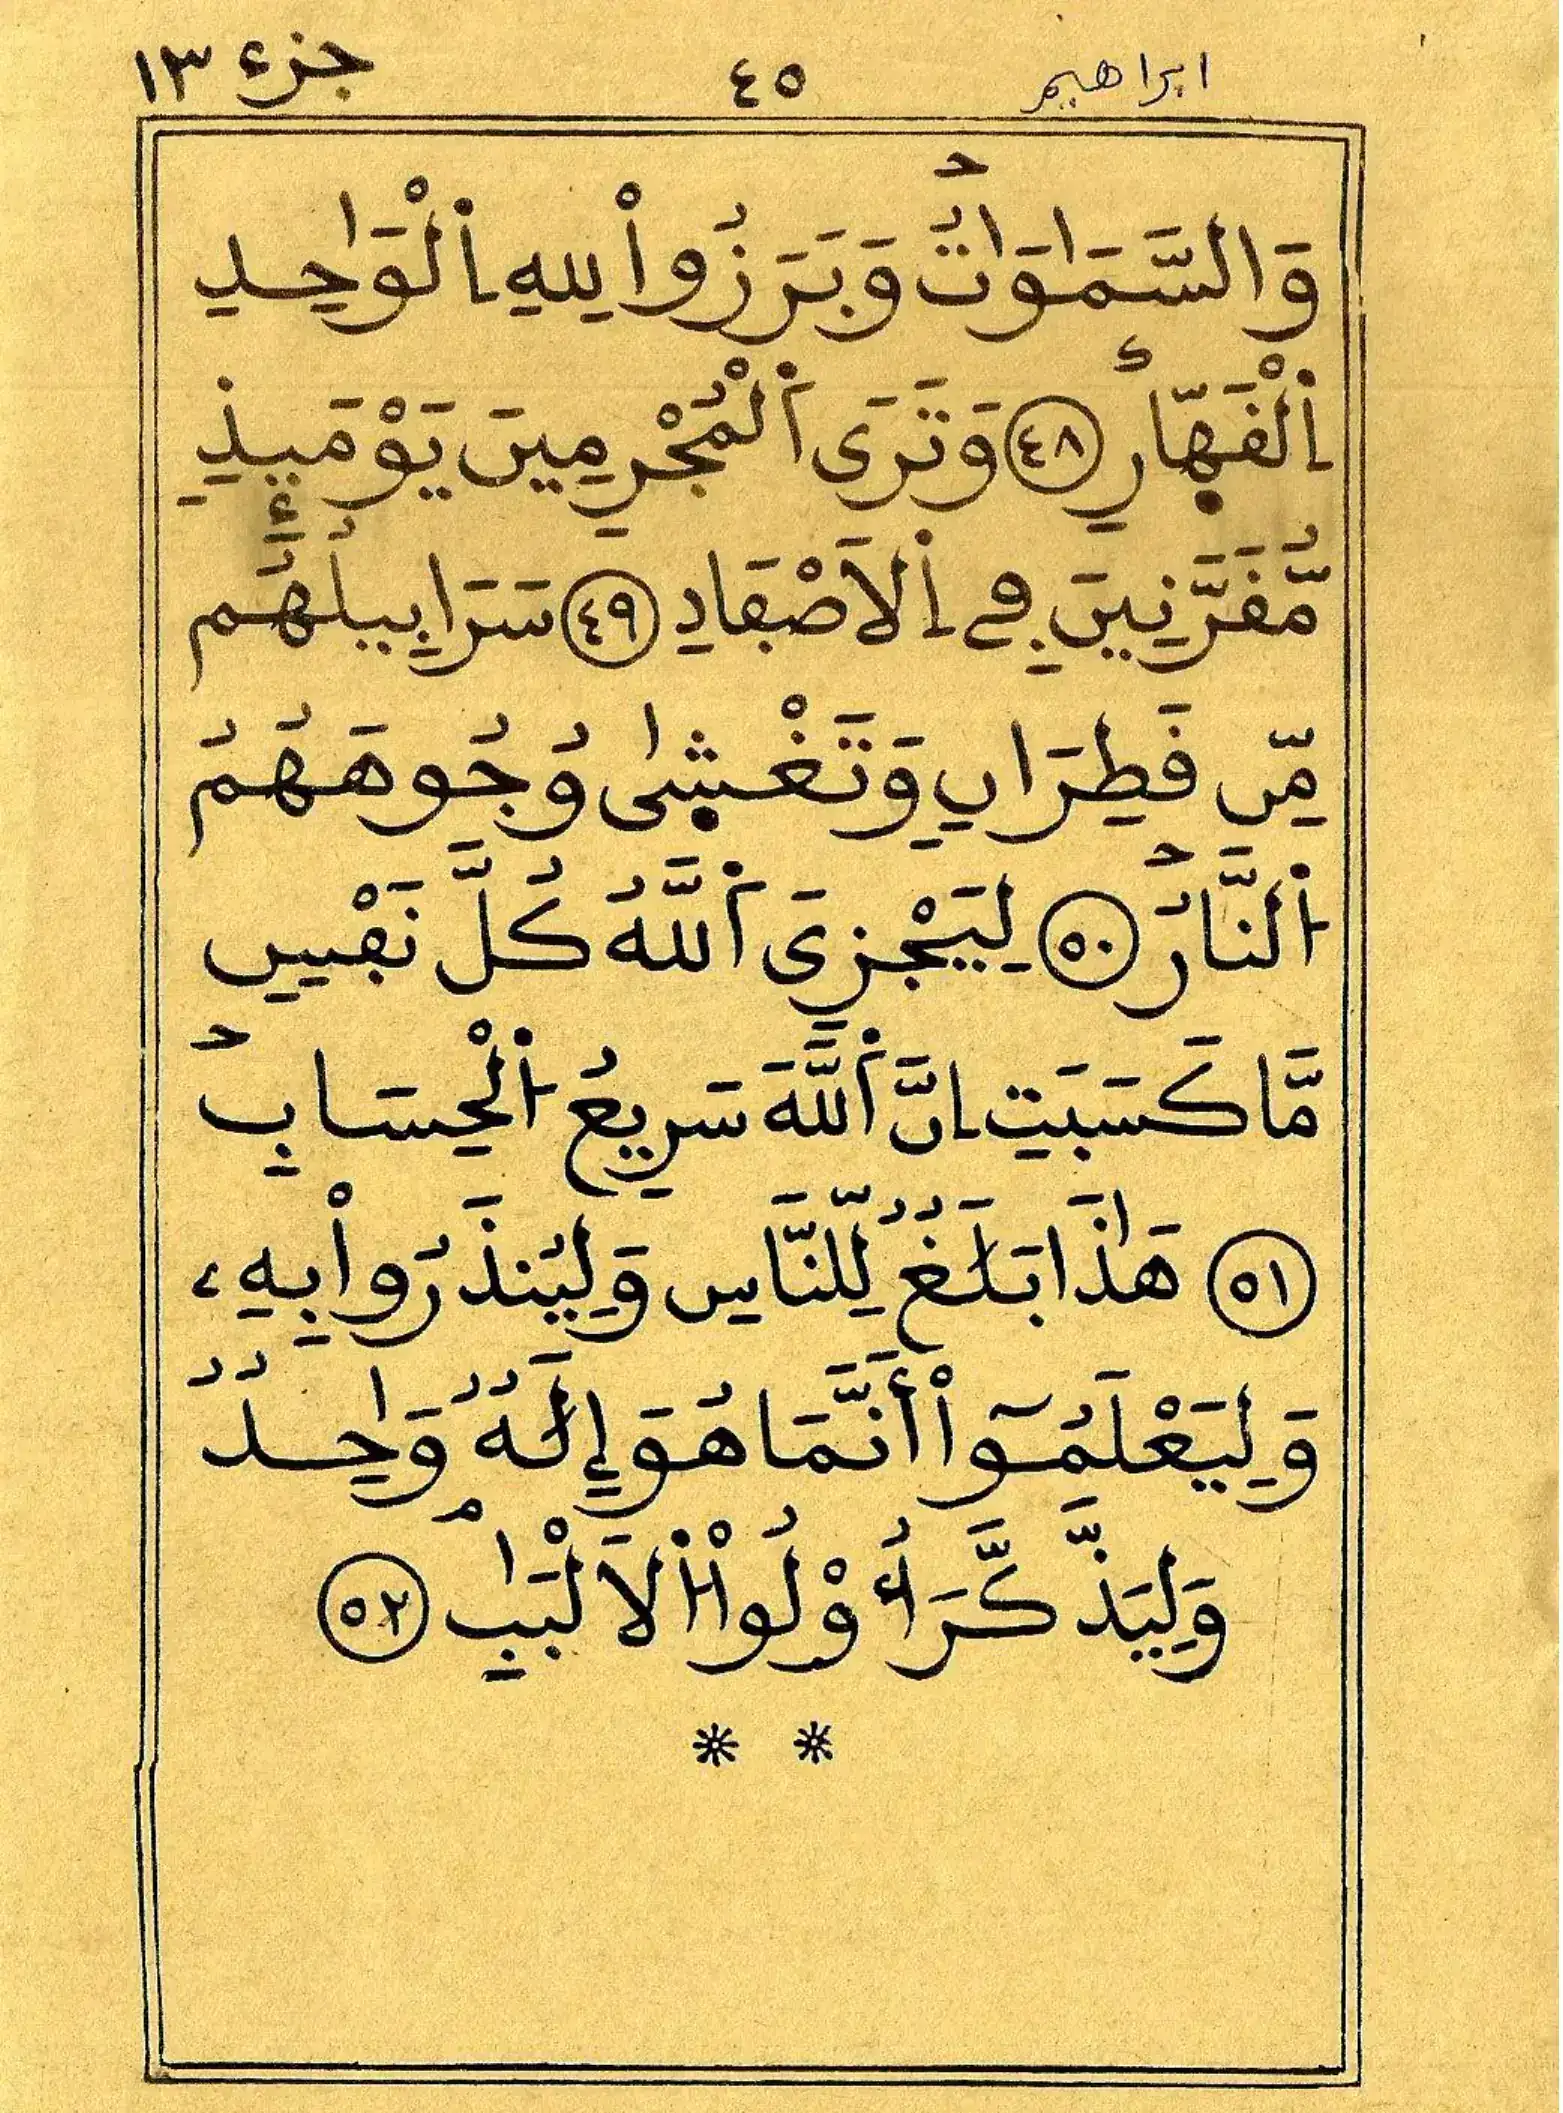 ابراهيم ٤٥ جزء ١٣
وَالسَّمَٰوَٰتُ وَبَرَزُواْ لِلهِ اِ۬لْوَٰحِدِ
اِ۬لْقَهّ۪ارِ ٤٨ وَتَرَى اَ۬لْمُجْرِمِينَ يَوْمَئِذٖ
مُّقَرَّنِينَ فِے اِ۬لَاصْفَادِ ٤٩ سَرَابِيلُهُم
مِّن قَطِرَانٖ وَتَغْش۪يٰ وُجُوهَهُمُ
اُ۬لنَّارُ ٥٠ لِيَجْزِيَ اَ۬للَّهُ كُلَّ نَفْسٖ
مَّا كَسَبَتِ اِنَّ اَ۬للَّهَ سَرِيعُ اُ۬لْحِسَابِ
٥١ هَٰذَا بَلَٰغٞ لِّلنَّاسِ وَلِيُنذَرُواْ بِهِۦ
وَلِيَعْلَمُوٓاْ أَنَّمَا هُوَ إِلَٰهٞ وَٰحِدٞ
وَلِيَذَّكَّرَ أُوْلُواْ اُ۬لَالْبَٰبِ ٥٢